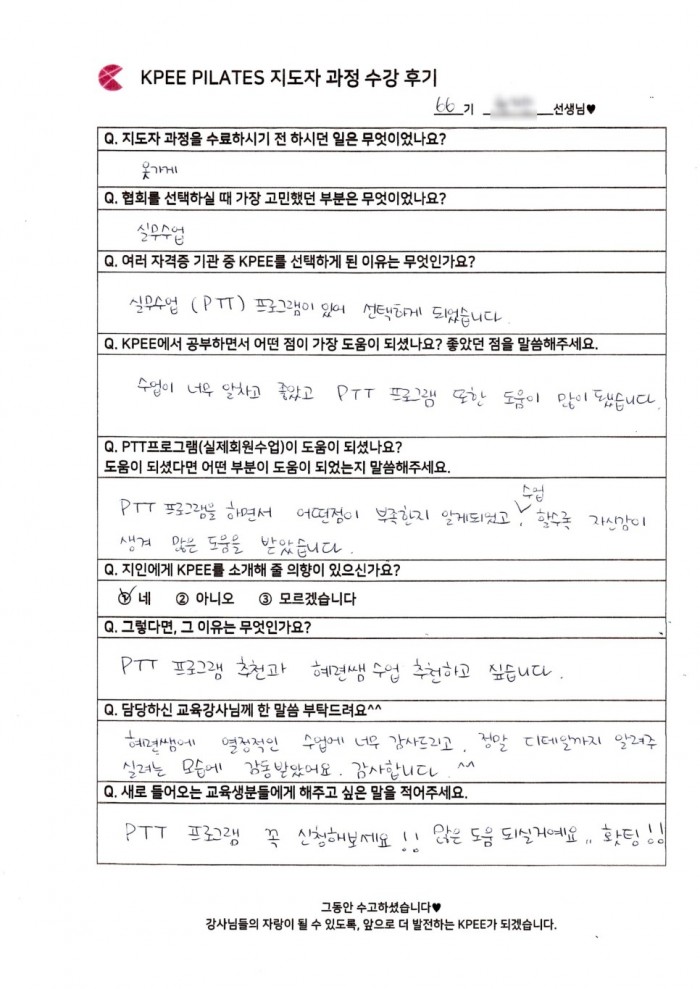 KPEE PILATES 지도자 과정 수강 후기
66 기 선생님♥
Q. 지도자 과정을 수료하시기 전 하시던 일은 무엇이었나요?
옷가게
Q. 협회를 선택하실 때 가장 고민했던 부분은 무엇이었나요?
실무수업
Q. 여러 자격증 기관 중 KPEE를 선택하게 된 이유는 무엇인가요?
실무수업 (PTT) 프로그램이 있어 선택하게 되었습니다.
Q. KPEE에서 공부하면서 어떤 점이 가장 도움이 되셨나요? 좋았던 점을 말씀해주세요.
수업이 너무 알차고 좋았고 PTT 프로그램 또한 도움이 많이 됐습니다.
Q. PTT프로그램(실제회원수업)이 도움이 되셨나요?
도움이 되셨다면 어떤 부분이 도움이 되었는지 말씀해주세요.
PTT 프로그램을 하면서 어떤점이 부족한지 알게되었고, 수업 할수록 자신감이
생겨 많은 도움을 받았습니다.
Q. 지인에게 KPEE를 소개해 줄 의향이 있으신가요?
① 네 ② 아니오 ③ 모르겠습니다
Q. 그렇다면, 그 이유는 무엇인가요?
PTT 프로그램 추천과 혜련쌤 수업 추천하고 싶습니다.
Q. 담당하신 교육강사님께 한 말씀 부탁드려요^^
혜련쌤에 열정적인 수업에 너무 감사드리고, 정말 디테일까지 알려주
실려는 모습에 감동받았어요. 감사합니다. ^^
Q. 새로 들어오는 교육생분들에게 해주고 싶은 말을 적어주세요.
PTT 프로그램 꼭 신청해보세요!! 많은 도움 되실거예요,, 홧팅!!
그동안 수고하셨습니다♥
강사님들의 자랑이 될 수 있도록, 앞으로 더 발전하는 KPEE가 되겠습니다.